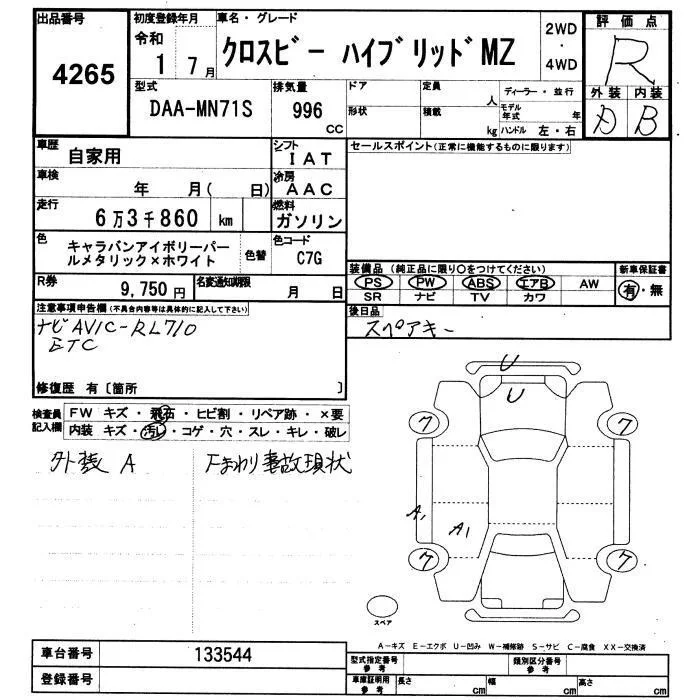 出品番号 初度登録年月 車名・グレード 評価点
4265
令和 1 7月
クロスビー ハイブリッドMZ
2WD
・
4WD
R
型式 排気量 ドア 定員 人 ディーラー・並行 外装 内装
DAA-MN71S 996 cc
形状 積載 kg モデル年式 年
ハンドル 左・右
B
車歴 自家用 シフト IAT セールスポイント(正常に機能するものに限ります)
車検 年 月( 日) 冷房 AAC
走行 6万3千860 km 燃料 ガソリン
色 キャラバンアイボリーパールメタリック×ホワイト 色替 色コード C7G
装備品(純正品に限り○をつけてください) 新車保証書
PS PW ABS エアB AW 有・無
SR ナビ TV カワ
R券 9,750円 名変通知期限 月 日
注意事項申告欄(不具合内容等は具体的に記入して下さい)
後日品
スペアキー
ナビAVIC-RL710
ETC
修復歴 有〔箇所 〕
検査員記入欄 FW キズ・飛石・ヒビ割・リペア跡・×要
内装 キズ・汚れ・コゲ・穴・スレ・キレ・破レ
外装 A 下まわり事故現状
U
U
ワ ワ
A1 A1
ワ ワ
スペア
A-キズ E-エクボ U-凹み W-補修跡 S-サビ C-腐食 XX-交換済
車台番号 133544
登録番号
型式指定番号 参考 類別区分番号 参考
車庫証明用 参考 長さ cm 幅 cm 高さ cm